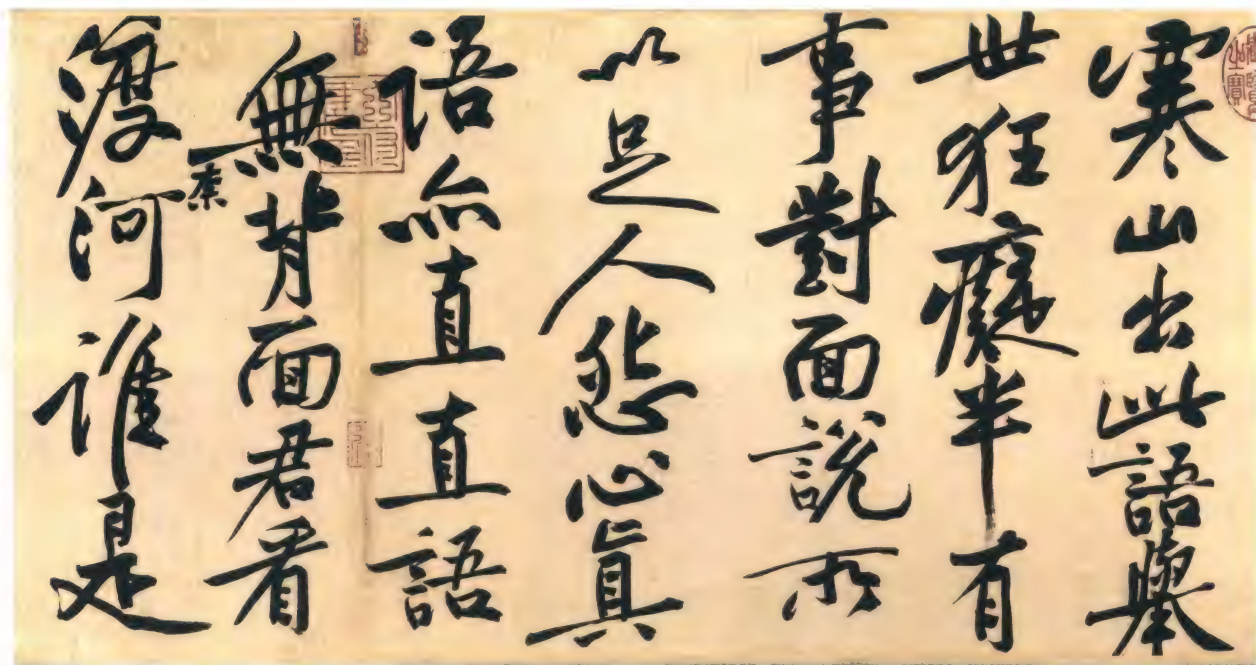 寒山出此語舉
世狂癡半有
事對面說所
以足人怨心真
語亦直直語
無背面君看
渡柰河誰是